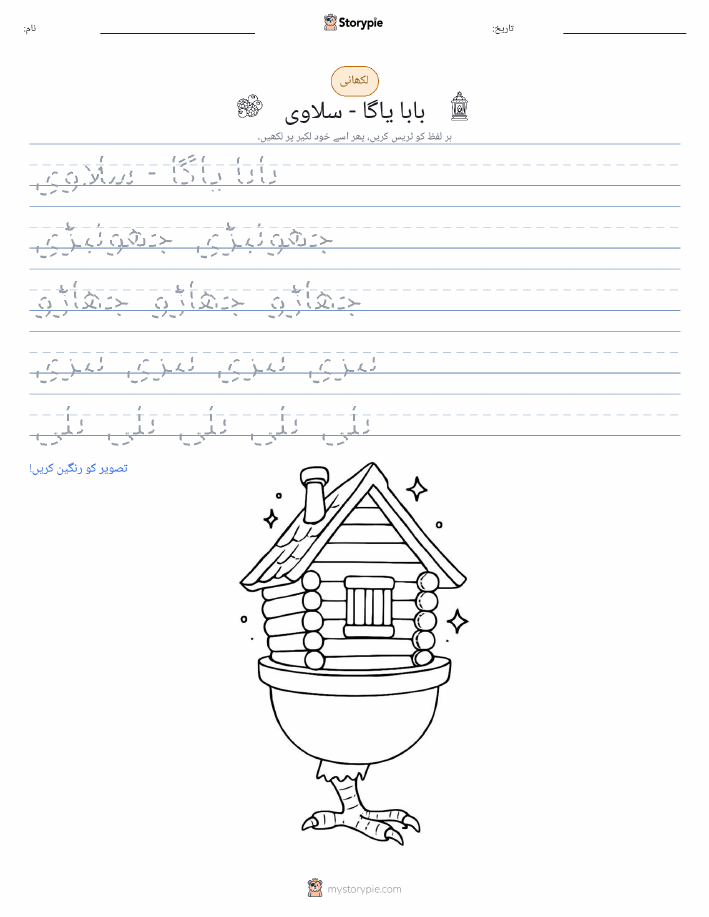 Storypie
نام:
تاریخ:
لکھائی
بابا یاگا - سلاوی
ہر لفظ کو ٹریس کریں، پھر اسے خود لکیر پر لکھیں۔
بابا یاگا - سلاوی
جھونپڑی جھونپڑی
جھاڑو جھاڑو جھاڑو
تیزی تیزی تیزی تیزی
بلی بلی بلی بلی بلی
تصویر کو رنگین کریں!
mystorypie.com